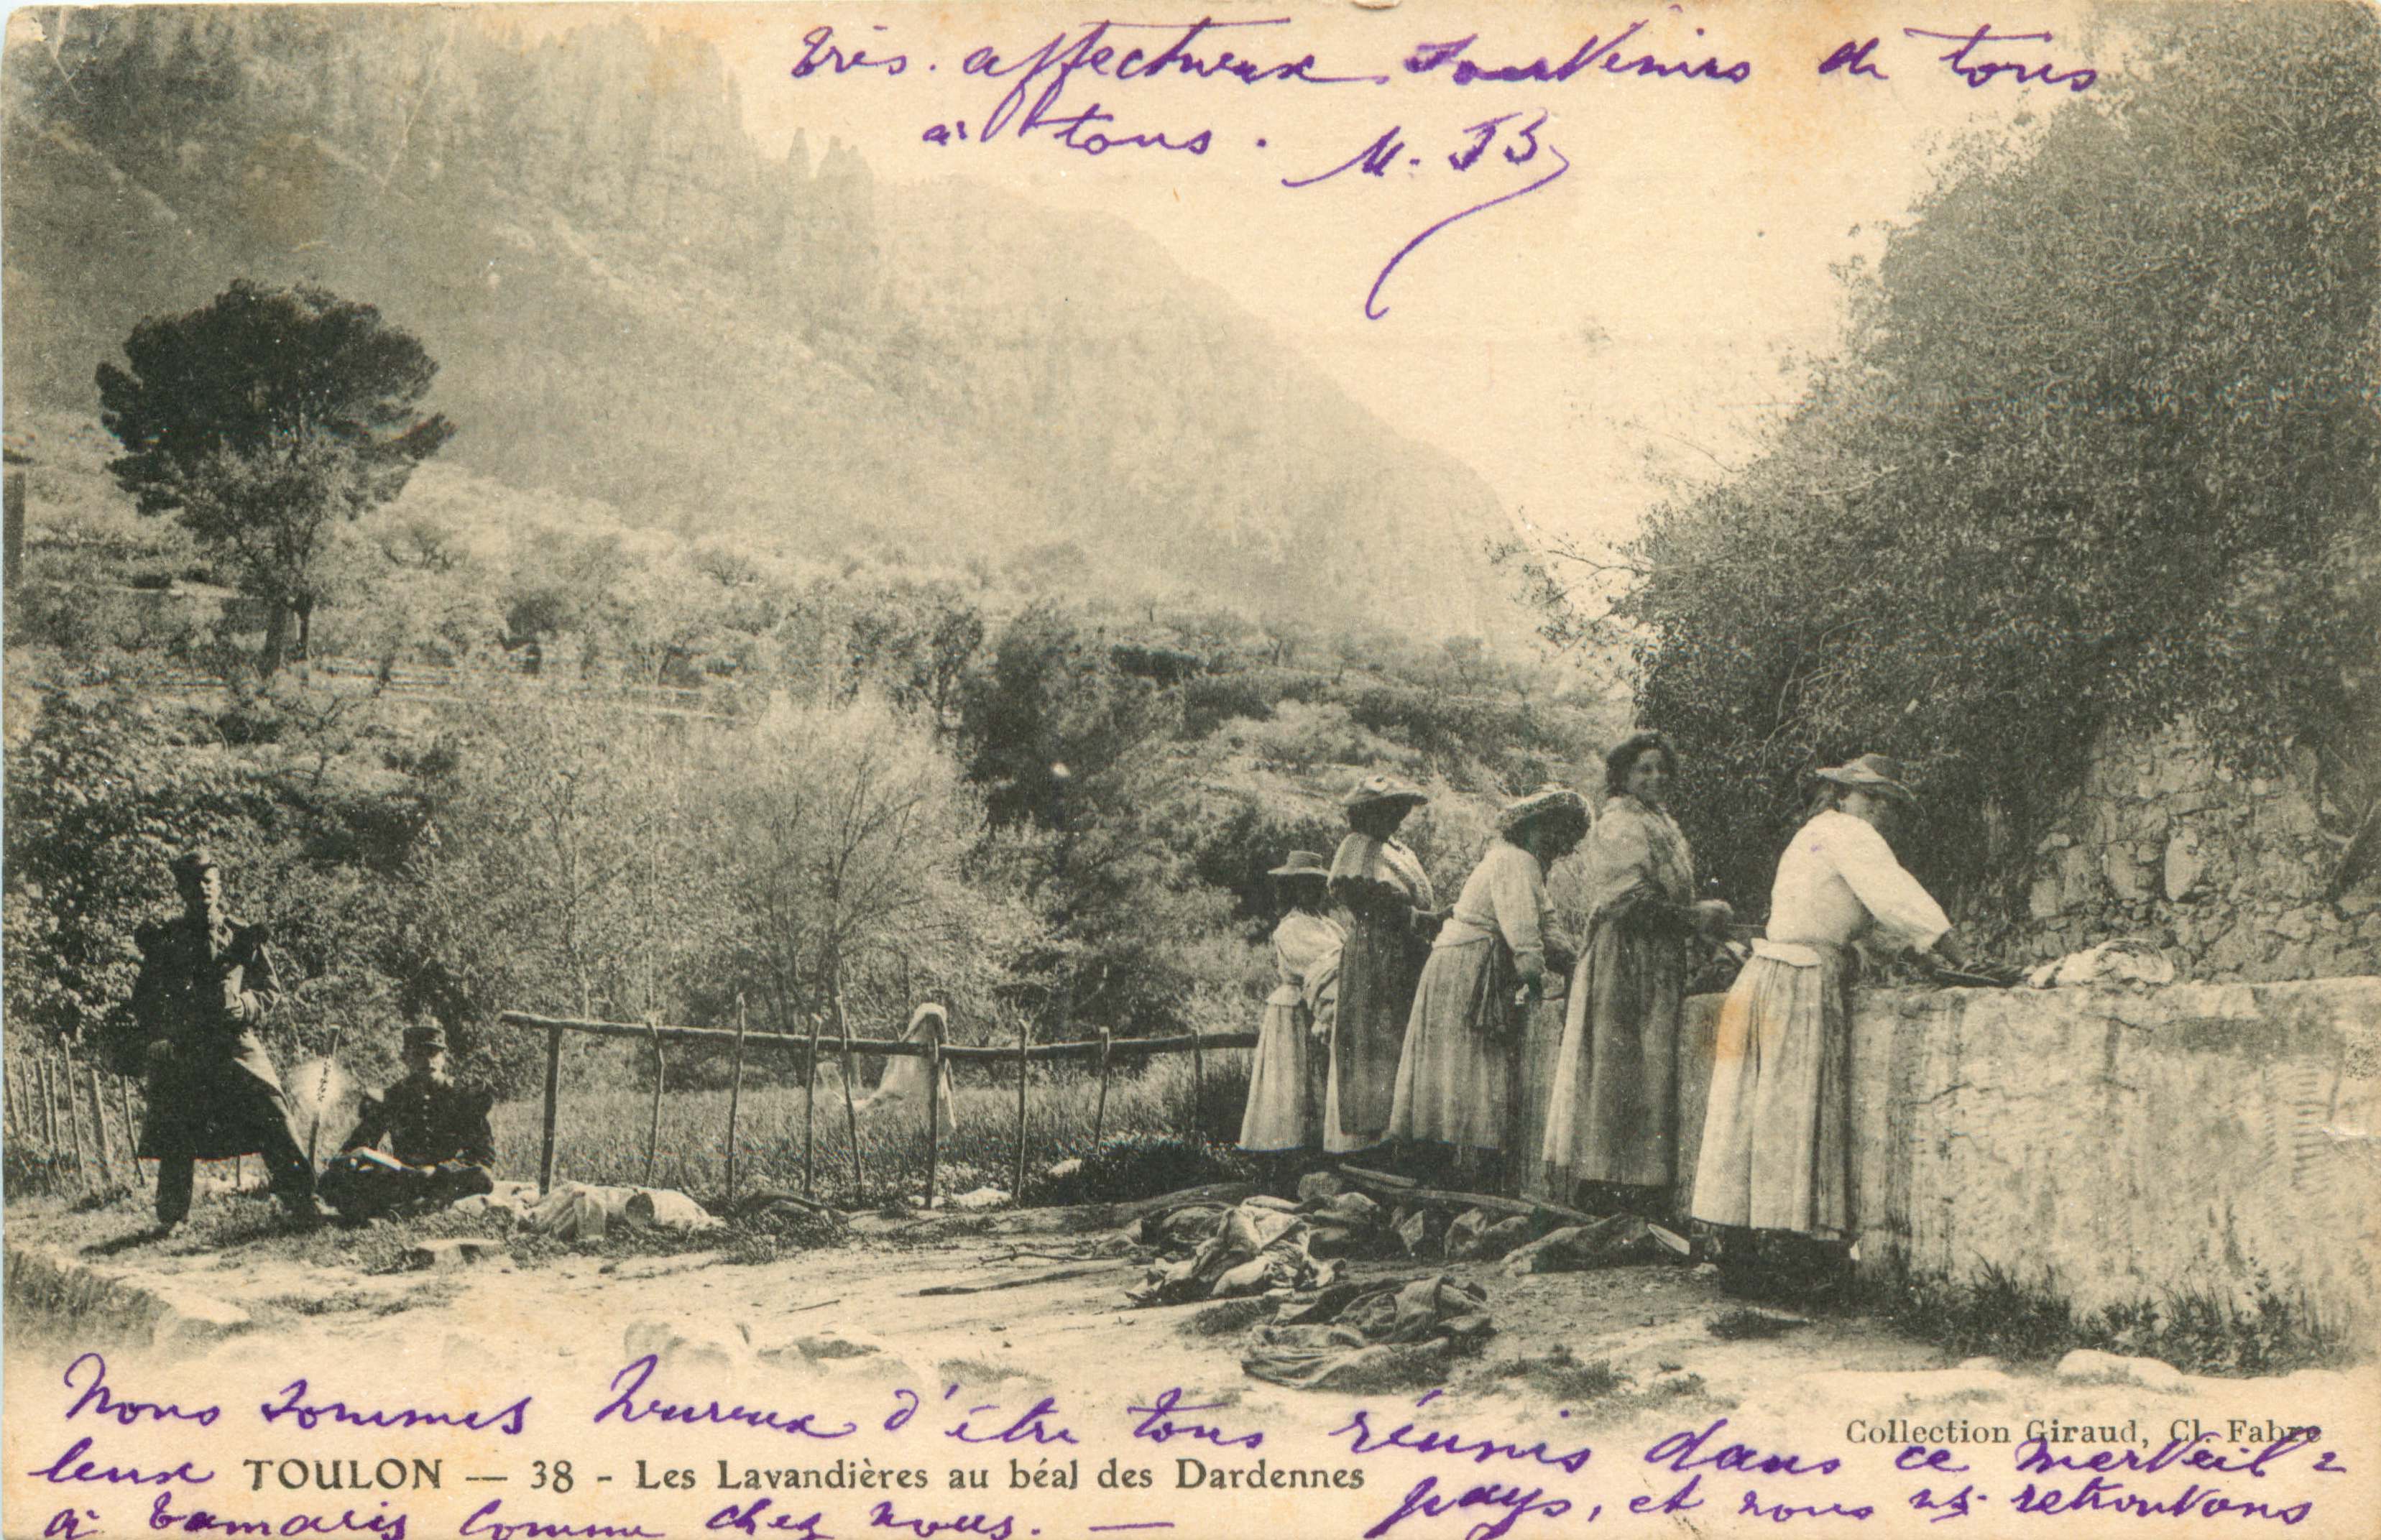 très affectueux souvenirs de tous
à tous. M. JB
Nous sommes heureux d'être tous réunis dans ce merveil=
Collection Giraud, Cl. Fabre
leux TOULON — 38 - Les Lavandières au béal des Dardennes pays, et nous ns retrouvons
à Tamaris comme chez nous. —